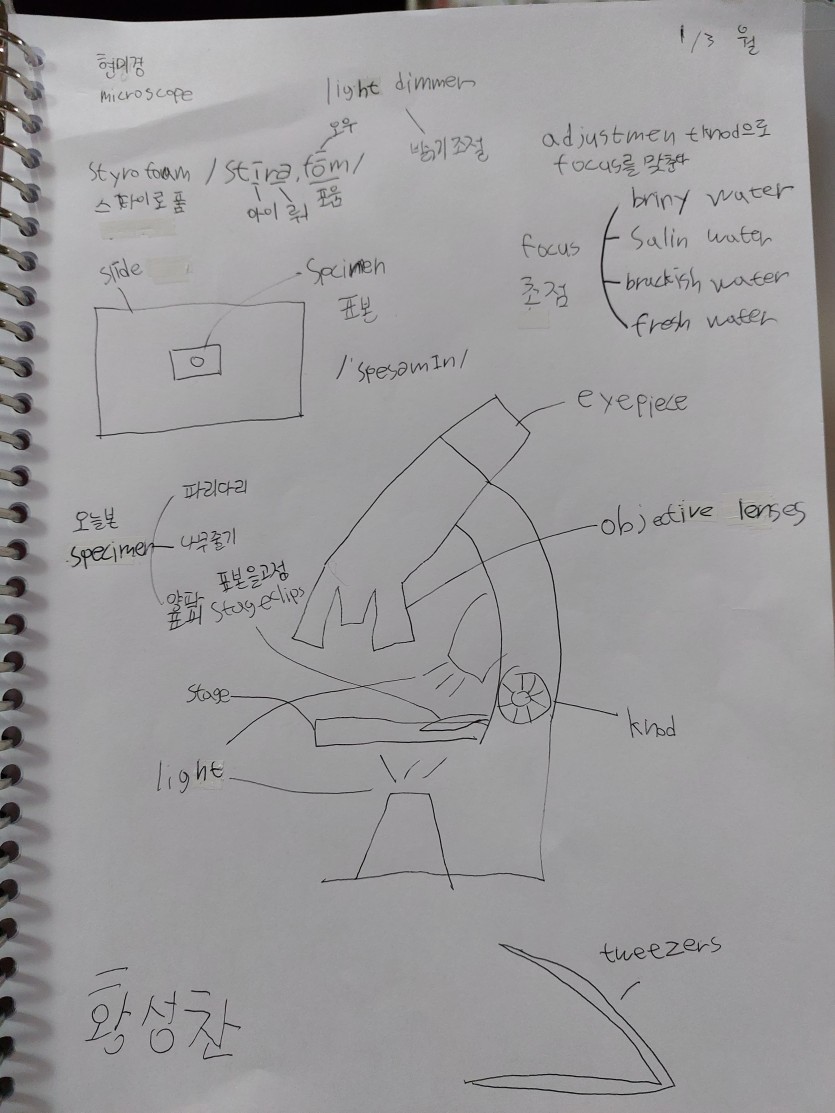 1/3 월
현미경
microscope
light dimmer
밝기조절
오우
styrofoam /stīrə,fōm/
스타이로폼
아이 뤄 포움
adjustmen tknod으로
focus를 맞춘다
focus
초점
briny water
Salin water
brackish water
fresh water
slide
Spocimen
표본
/'spesəmIn/
eyepiece
objective lenses
오늘본
specimen
파리다리
나무줄기
양파
표피
표본을고정
stageclips
stage
knod
light
tweezers
황성찬